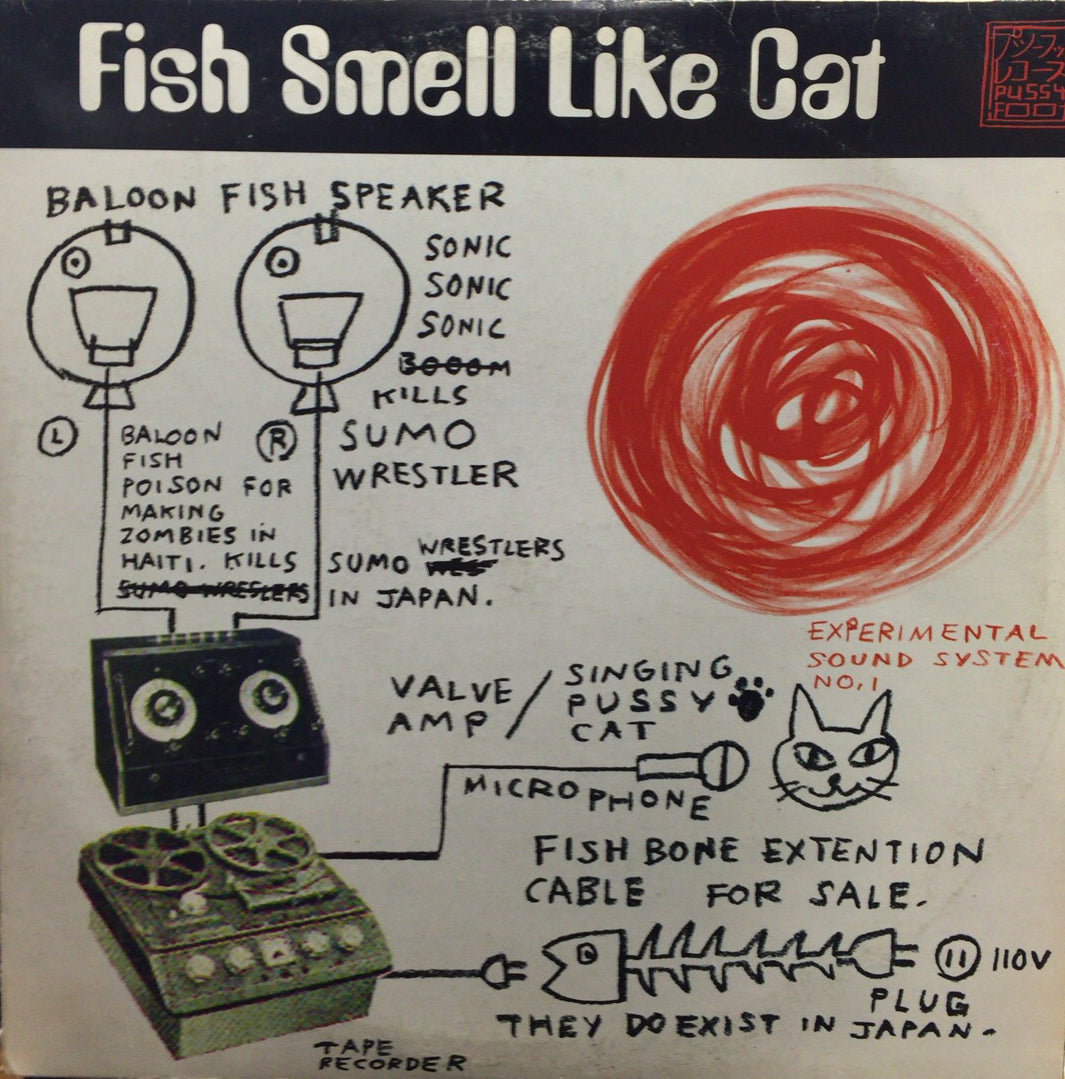 Fish Smell Like Cat
プッシーフット
レコース
PUSSY
FOOT
BALOON FISH SPEAKER
SONIC
SONIC
SONIC
BOOOM
KILLS
SUMO
WRESTLER
L
R
BALOON
FISH
POISON FOR
MAKING
ZOMBIES IN
HAITI. KILLS
SUMO WRESLERS
SUMO WRESTLERS
IN JAPAN.
EXPERIMENTAL
SOUND SYSTEM
NO,1
VALVE
AMP /
SINGING
PUSSY
CAT
MICROPHONE
FISH BONE EXTENTION
CABLE FOR SALE.
110V
PLUG
THEY DO EXIST IN JAPAN.
TAPE
RECORDER